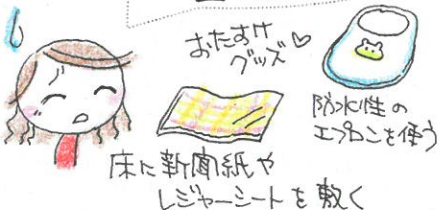 おたすけ
グッズ♡
防水性の
エプロンを使う
床に新聞紙や
レジャーシートを敷く